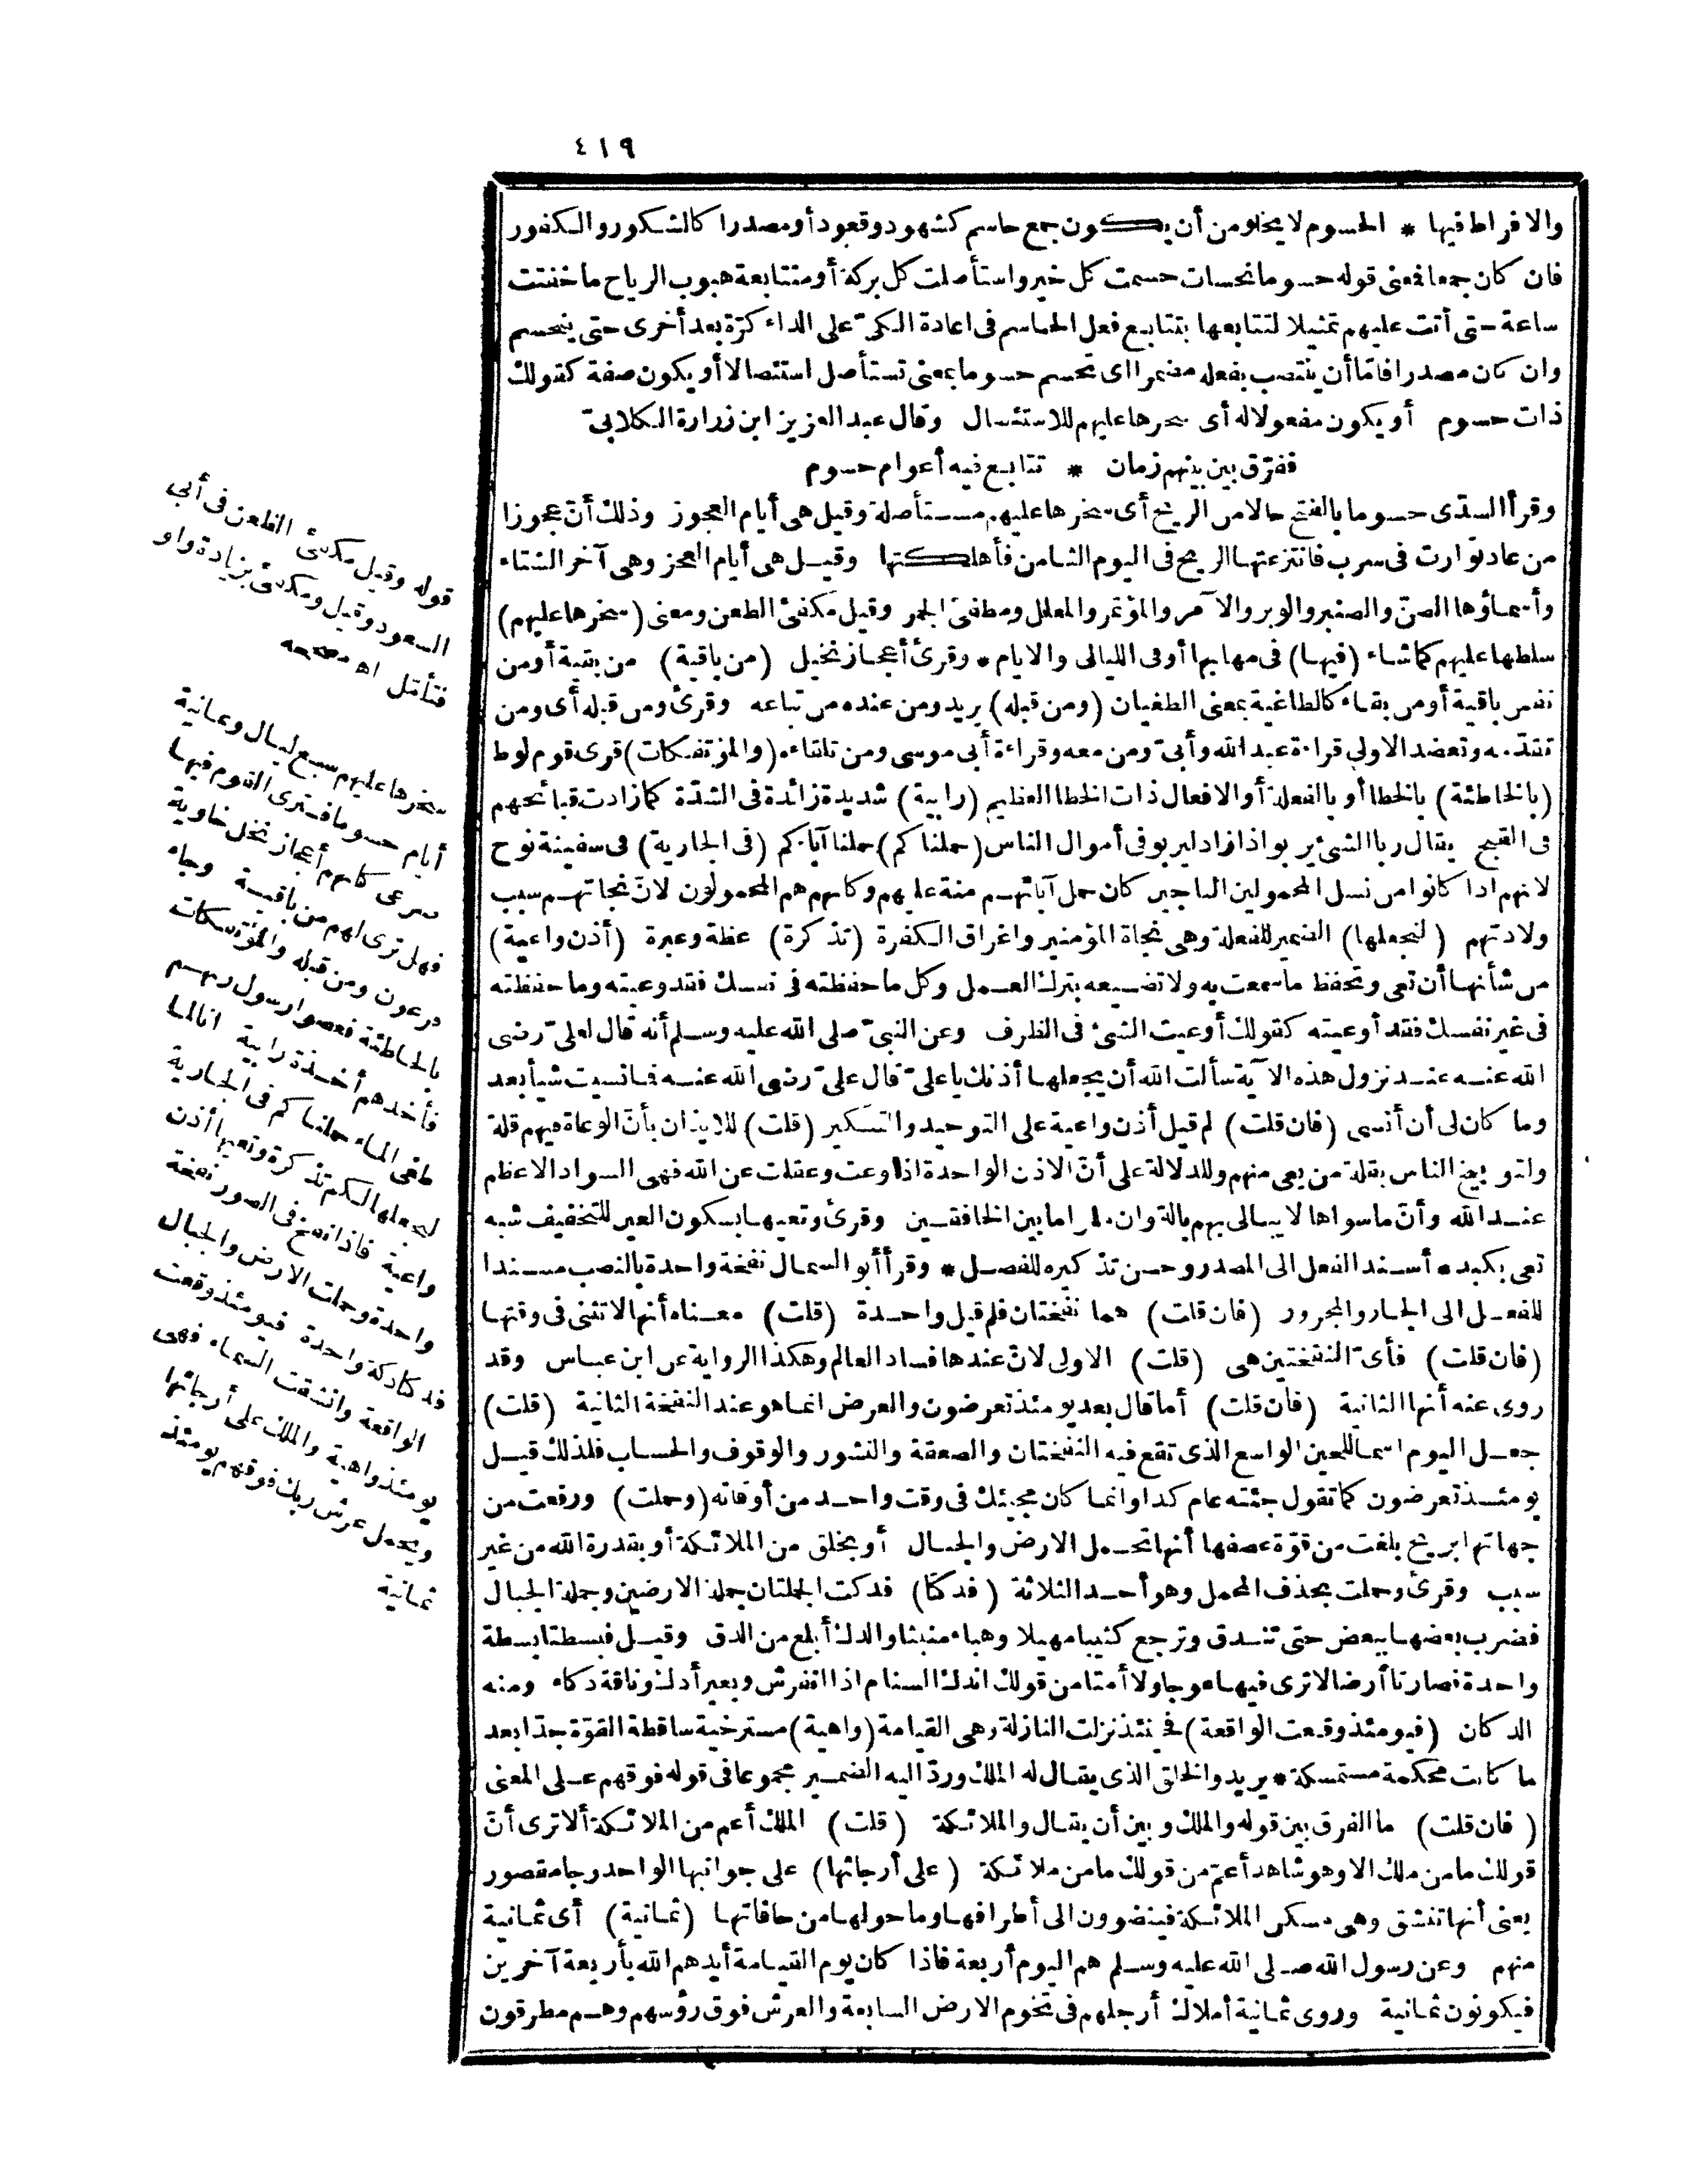 ٤١٩
والافراط فيها * الحسوم لا يخلو من أن يكون جمع حاسم كشهود وقعود أو مصدرا كالشكور والكفور
فان كان جمعا فعنى قوله حسوما نحسات حسمت كل خير واستأصلت كل بركة أو متتابعة هبوب الرياح ما خفتت
ساعة حتى أتت عليهم تمثيلا لتتابعها بتتابع فعل الحاسم فى اعادة الكىّ على الداء كرّة بعد أخرى حتى ينحسم
وان كان مصدرا فامّا أن ينتصب بفعله مضمرا اى تحسم حسوما بمعنى تستأصل استئصالا أو يكون صفة كقولك
ذات حسوم أو يكون مفعولا له أى سخرها عليهم للاستئصال وقال عبد العزيز ابن زرارة الكلابىّ
ففرّق بين بينهم زمان * تتابع فيه أعوام حسوم
وقرأ السدّى حسوما بالفتح حالا من الريح أى سخرها عليهم مستأصلة وقيل هى أيام العجوز وذلك أنّ عجوزا
من عاد توارت فى سرب فانتزعتها الريح فى اليوم الثامن فأهلكتها وقيل هى أيام العجز وهى آخر الشتاء
وأسماؤها الصنّ والصنبر والوبر والآمر والمؤتمر والمعلل ومطفئ الجمر وقيل مكفئ الظعن ومعنى (سخرها عليهم)
سلطها عليهم كما شاء (فيها) فى مهابها أو فى الليالى والايام * وقرئ أعجاز نخيل (من باقية) من بقية أو من
نفس باقية أو من بقاء كالطاغية بمعنى الطغيان (ومن قبله) يريد ومن عنده من تباعه وقرئ ومن قبله أى ومن
تقدّمه وتعضد الاولى قراءة عبد الله وأبىّ ومن معه وقراءة أبى موسى ومن تلقاءه (والمؤتفكات) قرى قوم لوط
(بالخاطئة) بالخطا أو بالفعلة أو الافعال ذات الخطا العظيم (رابية) شديدة زائدة فى الشدّة كما زادت قبائحهم
فى القبح يقال ربا الشئ يربو اذا زاد ليربو فى أموال الناس (حملناكم) حملنا آباءكم (فى الجارية) فى سفينة نوح
لانهم اذا كانوا من نسل المحمولين الناجين كان حمل آبائهم منة عليهم وكانهم هم المحمولون لانّ نجاتهم سبب
ولادتهم (لنجعلها) الضمير للفعلة وهى نجاة المؤمنين واغراق الكفرة (تذكرة) عظة وعبرة (أذن واعية)
من شأنها أن تعى وتحفظ ما سمعت به ولا تضيعه بترك العمل وكل ما حفظته فى نفسك فقد وعيته وما حفظته
فى غير نفسك فقد أوعيته كقولك أوعيت الشئ فى الظرف وعن النبىّ صلى الله عليه وسلم أنه قال لعلىّ رضى
الله عنه عند نزول هذه الآية سألت الله أن يجعلها أذنك يا علىّ قال علىّ رضى الله عنه فما نسيت شيأ بعد
وما كان لى أن أنسى (فان قلت) لم قيل أذن واعية على التوحيد والتنكير (قلت) للايذان بأنّ الوعاة فيهم قلة
ولتوبيخ الناس بقلة من يعى منهم وللدلالة على أنّ الاذن الواحدة اذا وعت وعقلت عن الله فهى السواد الاعظم
عند الله وأنّ ما سواها لا يبالى بهم بالة وان ملؤا ما بين الخافقين وقرئ وتعيها بسكون العين للتخفيف شبه
تعى بكبد * أسند الفعل الى المصدر وحسن تذكيره للفصل * وقرأ أبو السمال نفخة واحدة بالنصب مسندا
للفعل الى الجار والمجرور (فان قلت) هما نفختان فلم قيل واحدة (قلت) معناه أنها لا تثنى فى وقتها
(فان قلت) فأىّ النفختين هى (قلت) الاولى لانّ عندها فساد العالم وهكذا الرواية عن ابن عباس وقد
روى عنه أنها الثانية (فان قلت) أما قال بعد يومئذ تعرضون والعرض انما هو عند النفخة الثانية (قلت)
جعل اليوم اسما للحين الواسع الذى تقع فيه النفختان والصعقة والنشور والوقوف والحساب فلذلك قيل
يومئذ تعرضون كما تقول جئته عام كذا وانما كان مجيئك فى وقت واحد من أوقاته (وحملت) ورفعت من
جهاتها بريح بلغت من قوّة عصفها أنها تحمل الارض والجبال أو بخلق من الملائكة أو بقدرة الله من غير
سبب وقرئ وحملت بحذف المحمل وهو أحد الثلاثة (فدكتا) فدكت الجملتان جملة الارضين وجملة الجبال
فضرب بعضها ببعض حتى تندق وترجع كثيبا مهيلا وهباء منبثا والدك أبلغ من الدق وقيل فبسطتا بسطة
واحدة فصارتا أرضا لا ترى فيها عوجا ولا أمتا من قولك اندك السنام اذا انفرش وبعير أدك وناقة دكاء ومنه
الدكان (فيومئذ وقعت الواقعة) فحينئذ نزلت النازلة وهى القيامة (واهية) مسترخية ساقطة القوّة جدّا بعد
ما كانت محكمة مستمسكة * يريد والخلق الذى يقال له الملك وردّ اليه الضمير مجموعا فى قوله فوقهم على المعنى
(فان قلت) ما الفرق بين قوله والملك وبين أن يقال والملائكة (قلت) الملك أعم من الملائكة ألا ترى أنّ
قولك ما من ملك الا وهو شاهد أعمّ من قولك ما من ملائكة (على أرجائها) على جوانبها الواحد رجا مقصور
يعنى أنها تنشق وهى مسكن الملائكة فينضوون الى أطرافها وما حولها من حافاتها (ثمانية) أى ثمانية
منهم وعن رسول الله صلى الله عليه وسلم هم اليوم أربعة فاذا كان يوم القيامة أيدهم الله بأربعة آخرين
فيكونون ثمانية وروى ثمانية أملاك أرجلهم فى تخوم الارض السابعة والعرش فوق رؤسهم وهم مطرقون
قوله وقيل مكفئ الظعن فى أبى
السعود وقيل ومكفئ بزيادة واو
فتأمّل اه مصححه
سخرها عليهم سبع ليال وثمانية
أيام حسوما فترى القوم فيها
صرعى كانهم أعجاز نخل خاوية
فهل ترى لهم من باقية وجاء
فرعون ومن قبله والمؤتفكات
بالخاطئة فعصوا رسول ربهم
فأخذهم أخذة رابية انا لما
طغى الماء حملناكم فى الجارية
لنجعلها لكم تذكرة وتعيها أذن
واعية فاذا نفخ فى الصور نفخة
واحدة وحملت الارض والجبال
فدكتا دكة واحدة فيومئذ وقعت
الواقعة وانشقت السماء فهى
يومئذ واهية والملك على أرجائها
ويحمل عرش ربك فوقهم يومئذ
ثمانية